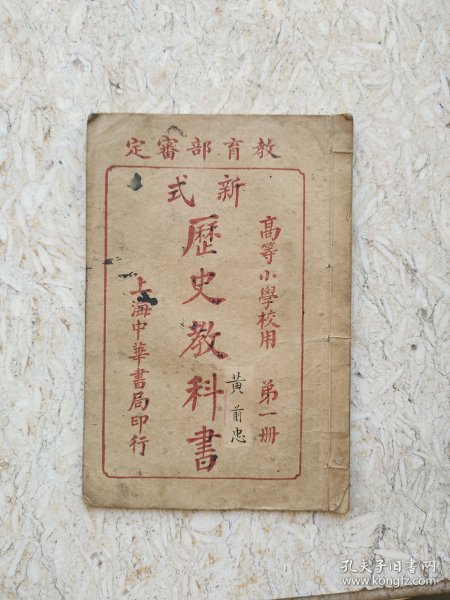 教育部審定
高等小學校用 第一册
新式
歷史教科書
黃前忠
上海中華書局印行
孔夫子旧书网
www.kongfz.com